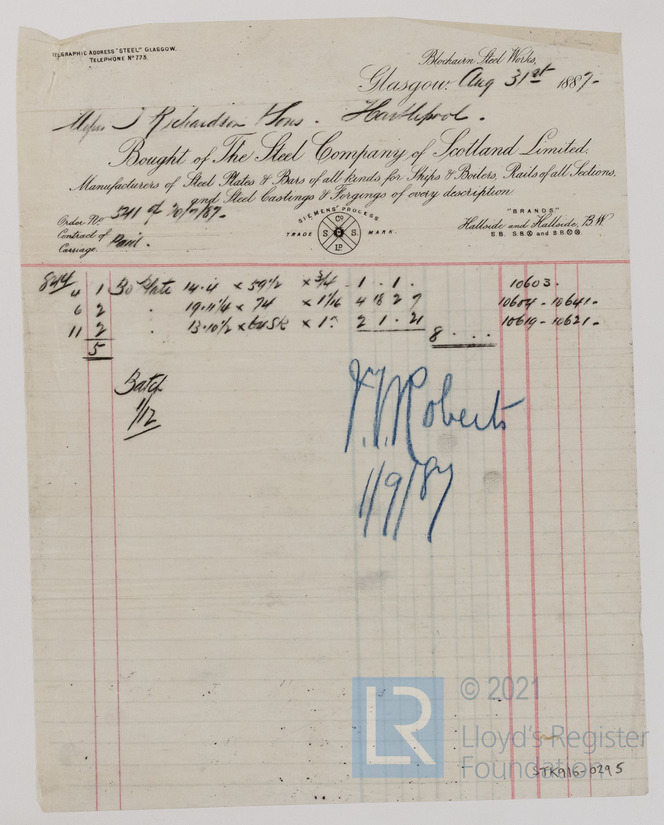 TELEGRAPHIC ADDRESS "STEEL" GLASGOW.
TELEPHONE Nº 773.
Blochairn Steel Works,
Glasgow, Aug 31st 1887-
Messrs J Richardson & Sons. Hartlepool.
Bought of The Steel Company of Scotland Limited.
Manufacturers of Steel Plates & Bars of all kinds for Ships & Boilers, Rails of all Sections,
and Steel Castings & Forgings of every description
Order No 541 of 20/7/87-
Contract of
Carriage. Paid.
SIEMENS' PROCESS
TRADE MARK.
Cº
S S
LD
"BRANDS"
Hallside and Hallside, B.W
844
4 1 Bo Plate 14.4 x 59½ x ¾ 1 . 1 . 10603.
6 2 " 19.11¼ x 74 x 1 1/16 4 18 2 7 10604 - 10641-
11 2 " 13.10½ x 2 1 . 21 10619 - 10621-
5 8 . . .
Batch
1/12
Roberts
1/9/87
LR © 2021
Lloyd's Register
Foundation
STK916-0295